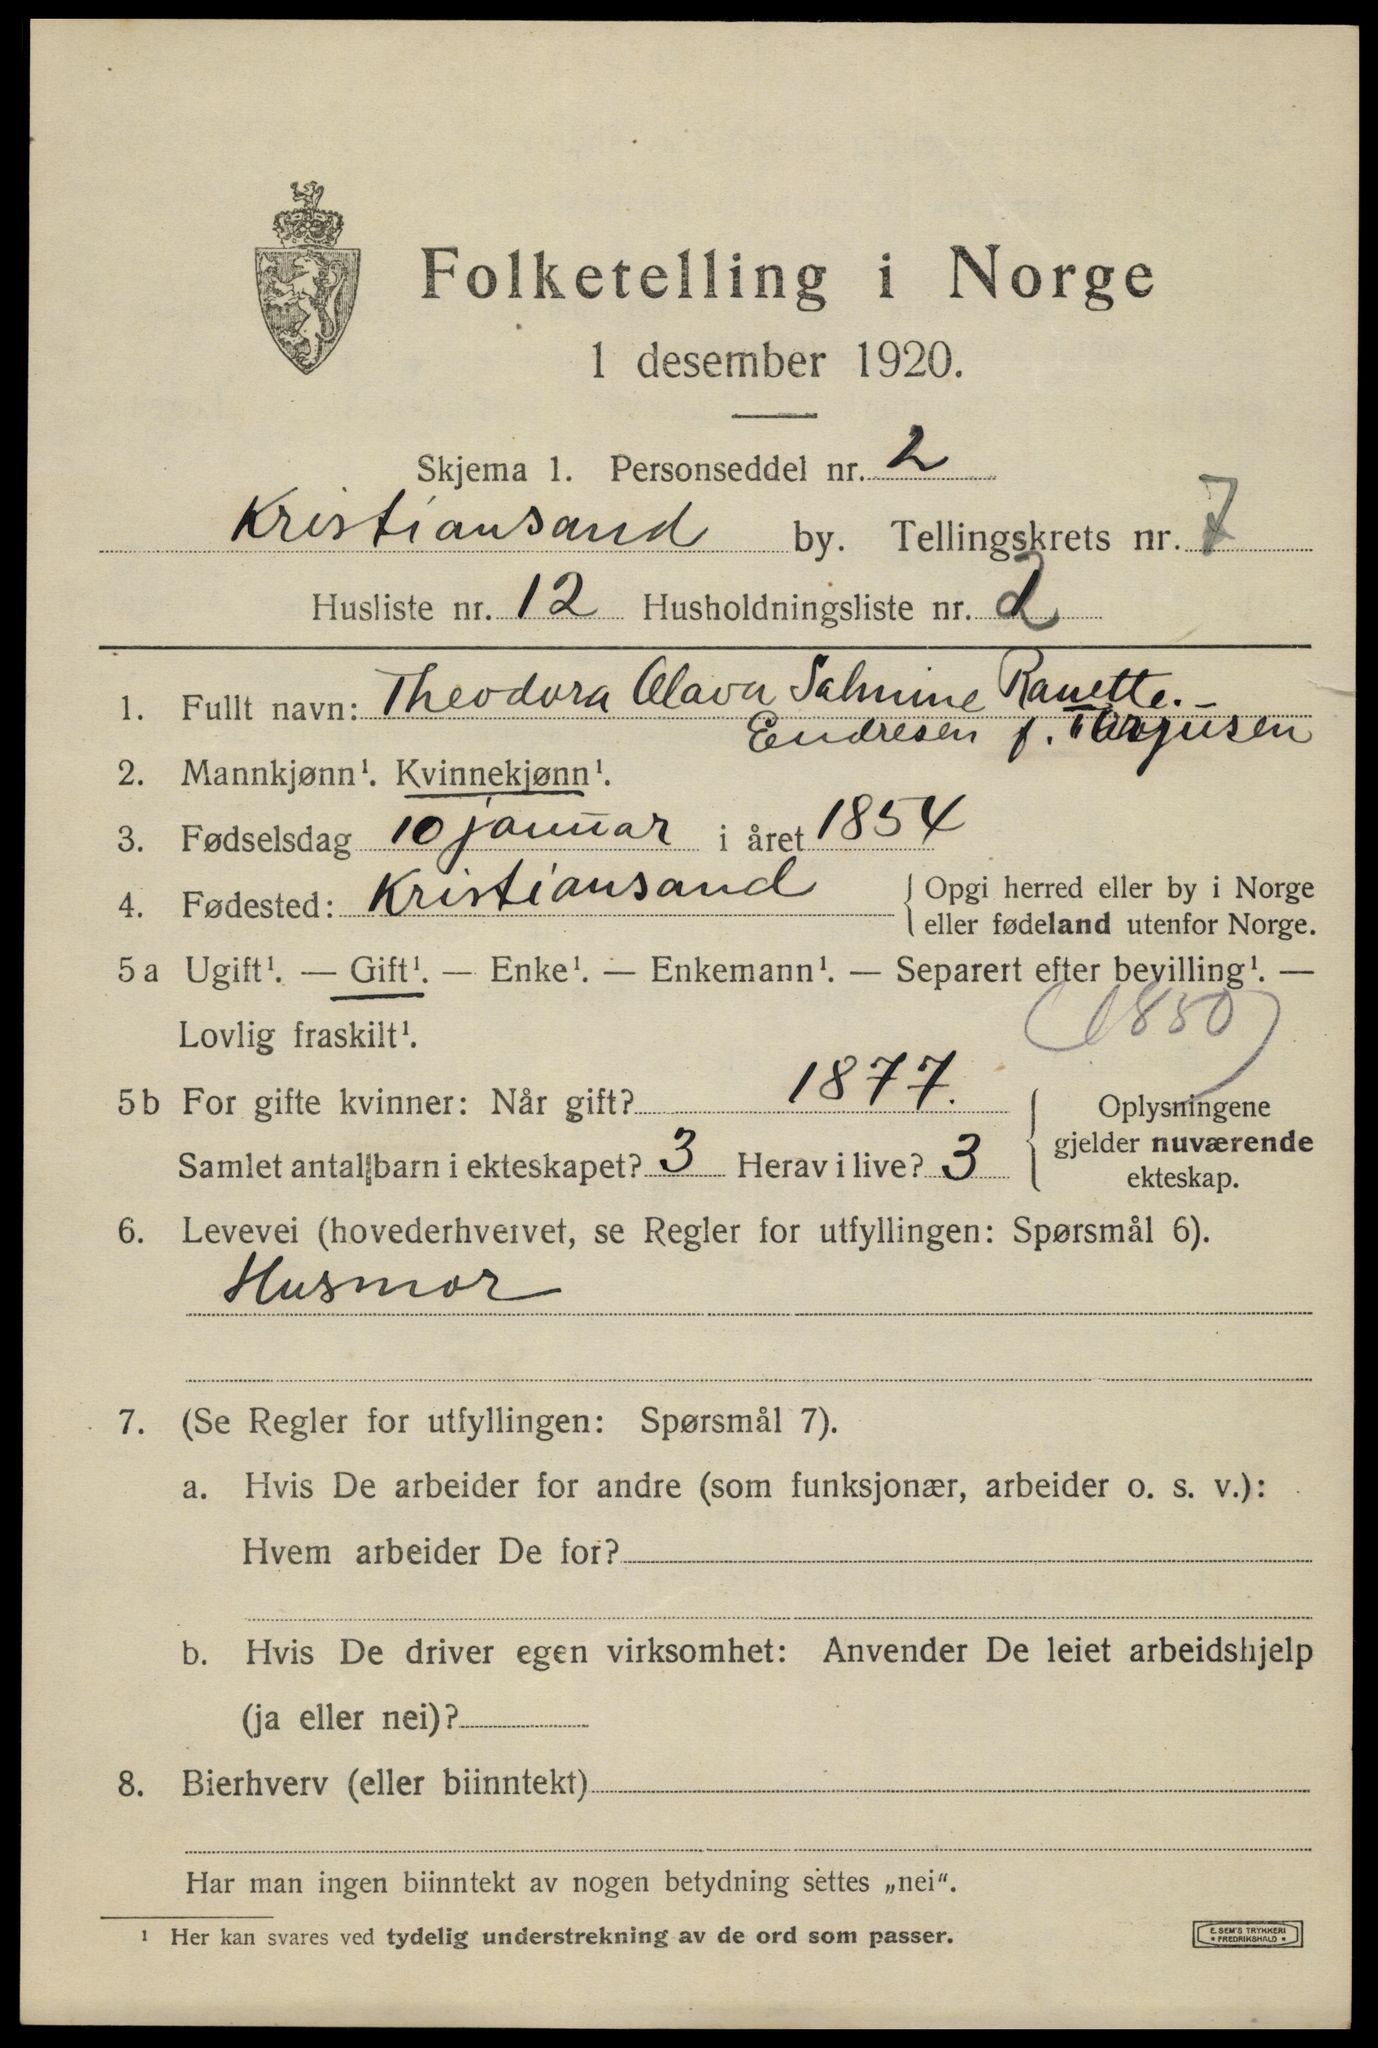 Folketelling i Norge
1 desember 1920.
Skjema 1. Personseddel nr. 2
Kristiansand by. Tellingskrets nr. 7
Husliste nr. 12 Husholdningsliste nr. 2
1. Fullt navn: Theodora Olava Salmine Ranette.
Endresen f. Tarjusen
2. Mannkjønn¹. Kvinnekjønn¹.
3. Fødselsdag 10 januar i året 1854
4. Fødested: Kristiansand { Opgi herred eller by i Norge
eller fødeland utenfor Norge.
5 a Ugift¹. — Gift¹. — Enke¹. — Enkemann¹. — Separert efter bevilling¹. —
Lovlig fraskilt¹.
(1850)
5 b For gifte kvinner: Når gift? 1877.
Samlet antal barn i ekteskapet? 3 Herav i live? 3
Oplysningene
gjelder nuværende
ekteskap.
6. Levevei (hovederhvervet, se Regler for utfyllingen: Spørsmål 6).
Husmor
7. (Se Regler for utfyllingen: Spørsmål 7).
a. Hvis De arbeider for andre (som funksjonær, arbeider o. s. v.):
Hvem arbeider De for?
b. Hvis De driver egen virksomhet: Anvender De leiet arbeidshjelp
(ja eller nei)?
8. Bierhverv (eller biinntekt)
Har man ingen biinntekt av nogen betydning settes „nei“.
¹ Her kan svares ved tydelig understrekning av de ord som passer.
E. SEM'S TRYKKERI
* FREDRIKSHALD *